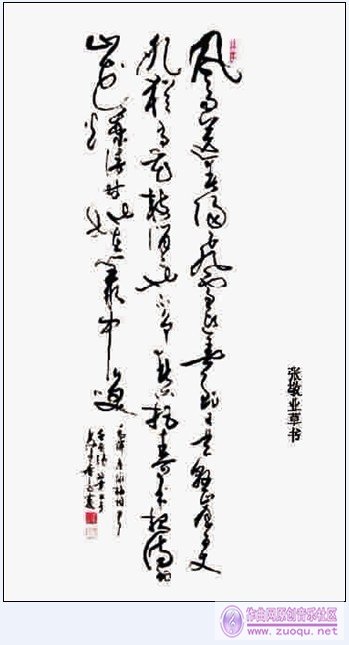 风雨送春归飞雪迎春到已是悬崖百丈
冰犹有花枝俏俏也不争春只把春来报待到
山花烂漫时她在丛中笑
张敬业草书
作曲网原创音乐社区
www.zuoqu.net